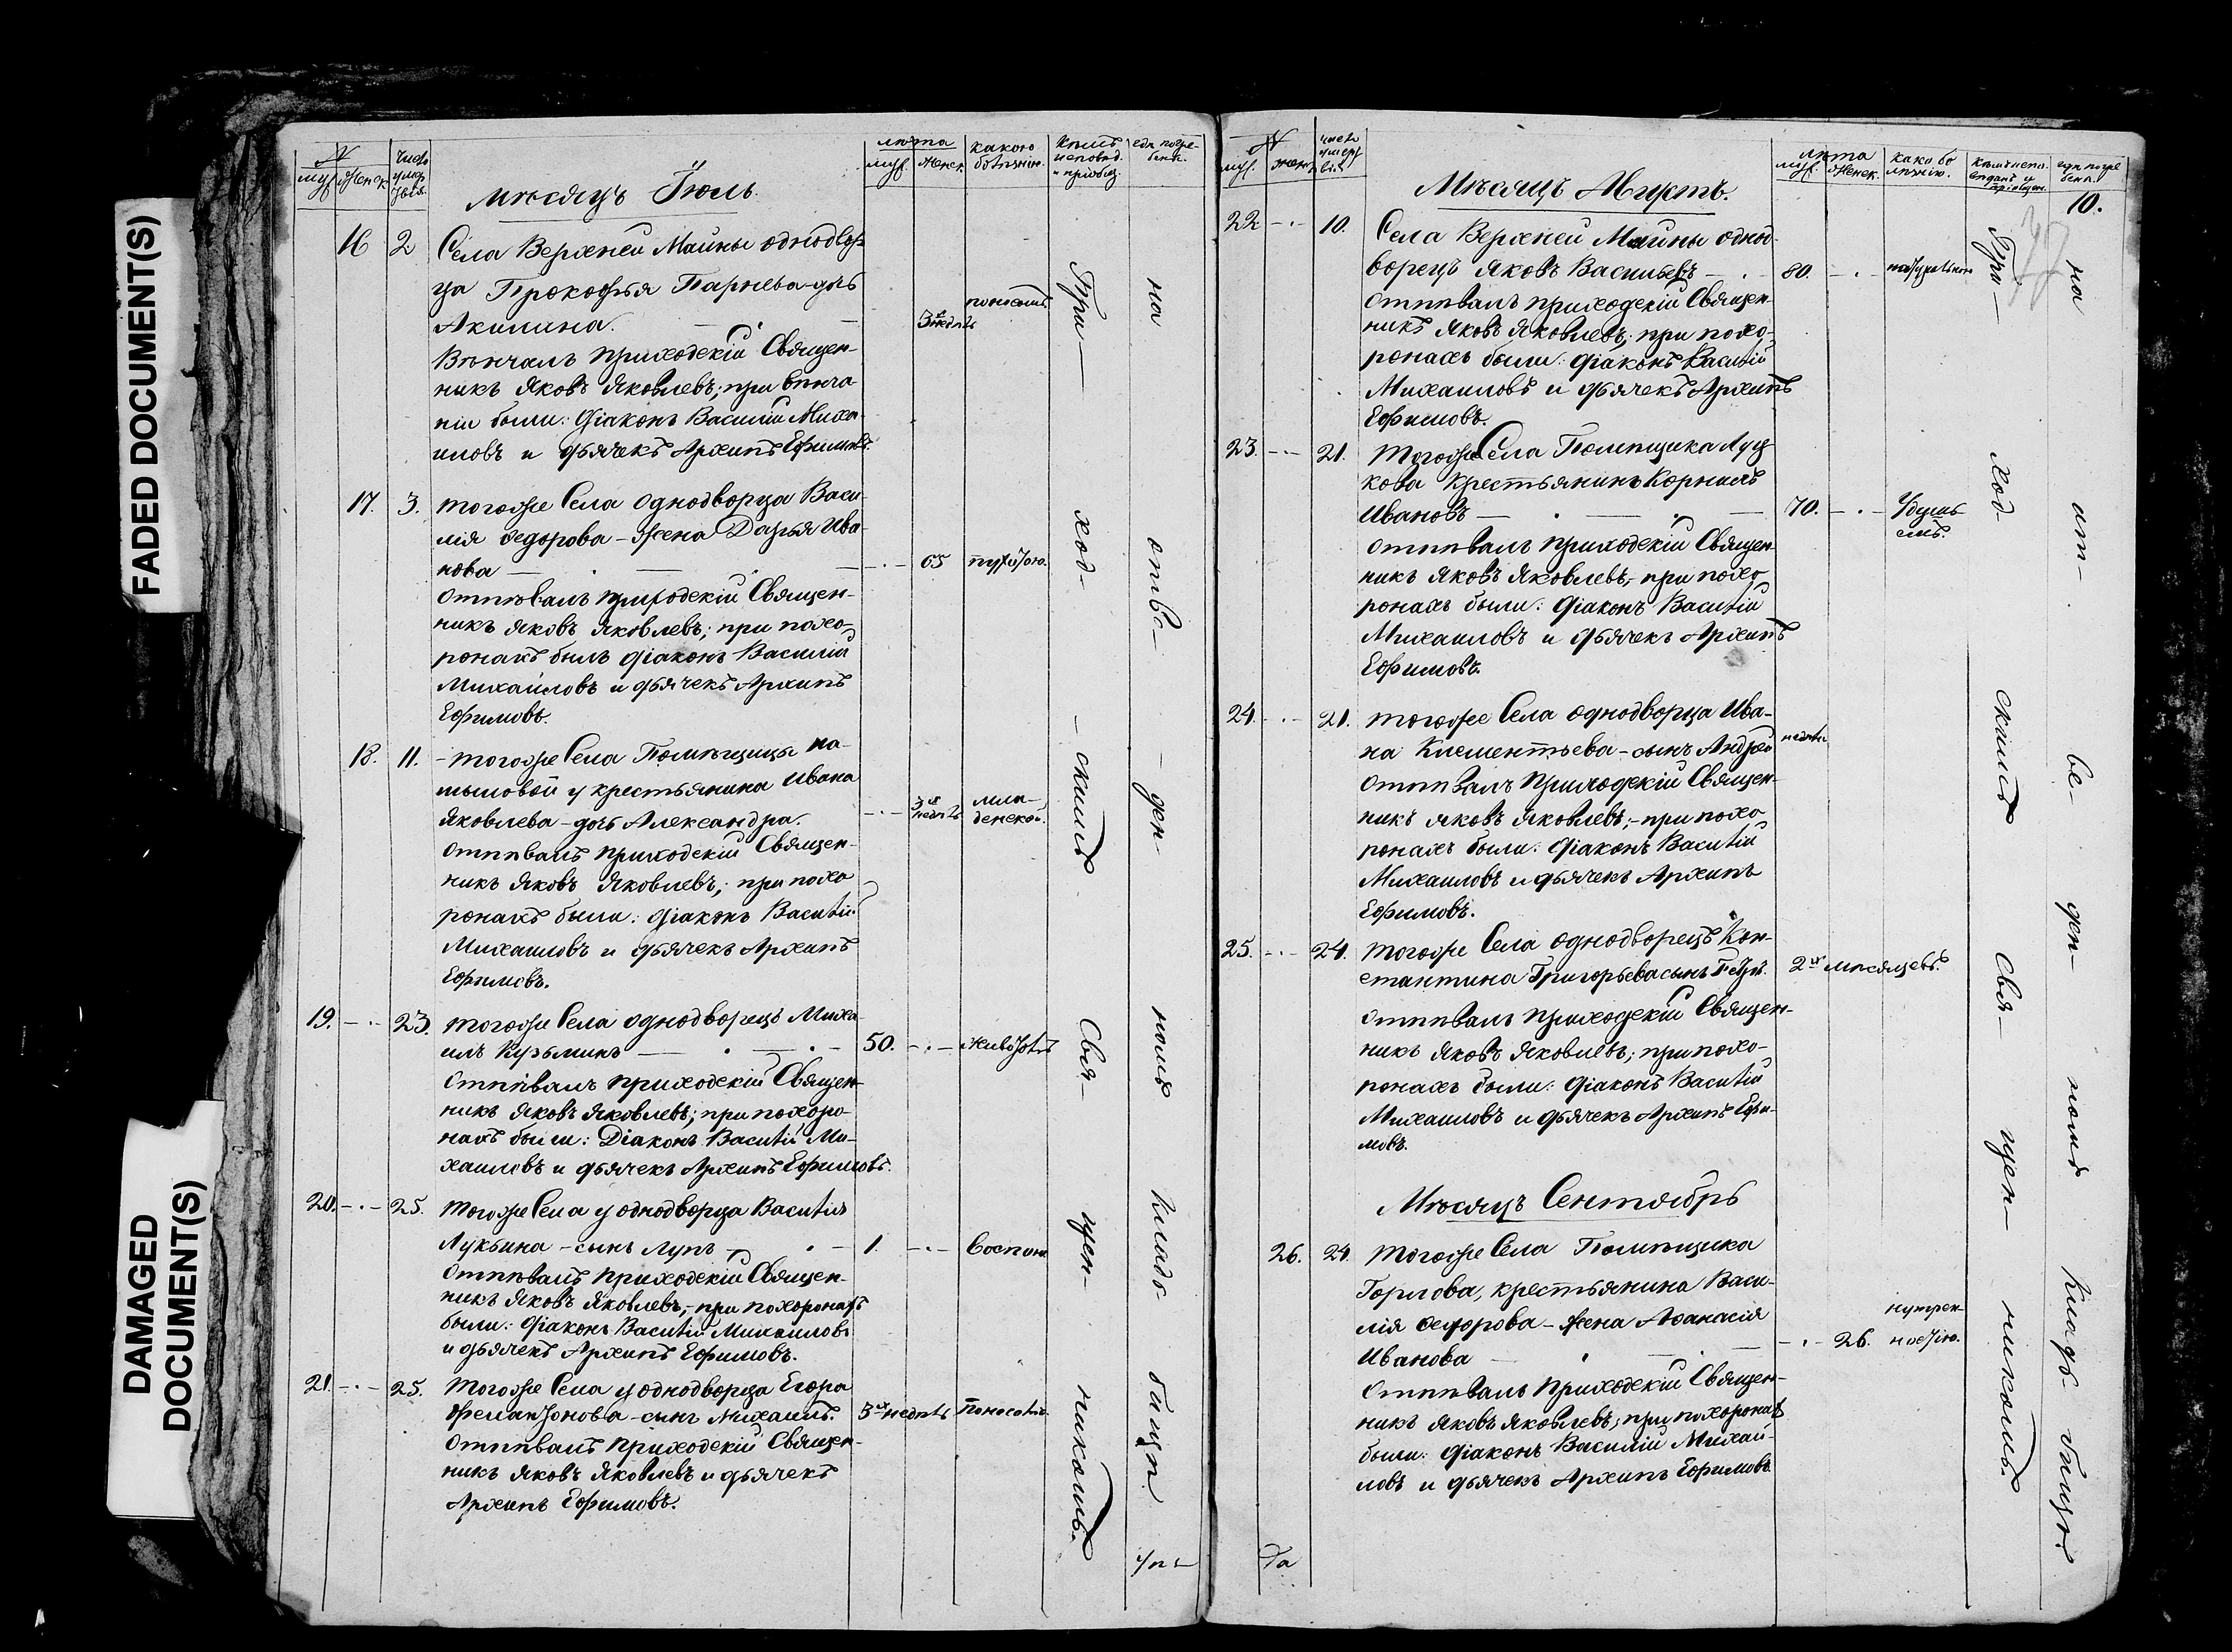 FADED DOCUMENT(S)
DAMAGED
DOCUMENT(S)
№
муж. женск.
число умер
лѣта
муж. женск.
какою болѣзнію.
Кѣмъ исповѣд. и приобщ.
гдѣ погребенъ.
мѣсяцъ Іюль.
16 2 Села Верхней Майны однодвор
ца Прокофья Парнева-дчь
Акилина. 3 недѣль поносомъ
Вѣнчалъ приходскій Священ-
никъ Яковъ Яковлевъ; при вѣнча
ніи были: діаконъ Василій Миха
иловъ и дьячекъ Архипъ Ефимовъ.
17. 3. тогоже Села однодворца Васи
лія Федорова - жена Дарья Ива-
нова 65
отпѣвалъ приходскій Священ-
никъ Яковъ Яковлевъ; при похо-
ронахъ былъ діаконъ Василій
Михайловъ и дьячекъ Архипъ
Ефимовъ.
18. 11. - тогоже Села Помѣщицы На-
мыловой у крестьянина Ивана
Яковлева - дочь Александра. 3х недѣль младенской.
отпѣвалъ приходскій Священ-
никъ Яковъ Яковлевъ; при похо
ронахъ были: діаконъ Василій
Михаиловъ и дьячекъ Архипъ
Ефимовъ.
19. 23. тогоже Села однодворецъ Миха-
илъ Кузьминъ 50. животомъ
отпѣвалъ приходскій Священ-
никъ Яковъ Яковлевъ; при похоро-
нахъ были: Діаконъ Василій Ми-
хаиловъ и дьячекъ Архипъ Ефимовъ.
20. 25. тогоже Села у однодворца Василія
Лукьина - сынъ Лупъ 1. воспою
отпѣвалъ приходскій Священ-
никъ Яковъ Яковлевъ; - при похоронахъ
были: діаконъ Василій Михаиловъ
и дьячекъ Архипъ Ефимовъ.
21. 25. тогоже Села у однодворца Егора
- сынъ Михаилъ. 3х недѣль Поносомъ
отпѣвалъ приходскій Священ-
никъ Яковъ Яковлевъ и дьячекъ
Архипъ Ефимовъ.
При-ход-скимъ Свя-щен-никомъ.
на отве-ден-номъ кладбищѣ
№
муж. женск.
число умерш
лѣта
муж. женск.
како болѣзнію.
гдѣ погребенъ.
10.
Мѣсяцъ Августъ.
22 10. Села Верхней Майны одно-
ворецъ Яковъ Васильевъ 80.
отпѣвалъ приходскій Священ-
никъ Яковъ Яковлевъ; при похо-
ронахъ были: діаконъ Василій
Михаиловъ и дьячекъ Архипъ
Ефимовъ.
23. 21. тогоже Села Помѣщика Луц
кова крестьянинъ Корнилъ
Ивановъ 70. Удушьемъ.
отпѣвалъ приходскій Священ-
никъ Яковъ Яковлевъ; при похо-
ронахъ были: діаконъ Василій
Михаиловъ и дьячекъ Архипъ
Ефимовъ.
24. 21. тогоже Села однодворца Ива-
на Клементьева - сынъ Андрей недѣли
отпѣвалъ приходскій Священ-
никъ Яковъ Яковлевъ; - при похо
ронахъ были: діаконъ Василій
Михаиловъ и дьячекъ Архипъ
Ефимовъ.
25. 24. тогоже Села однодворецъ Кон-
стантина Григорьева сынъ Петръ. 2хъ мѣсяцевъ.
отпѣвалъ приходскій Священ-
никъ Яковъ Яковлевъ; при похо-
ронахъ были: діаконъ Василій
Михаиловъ и дьячекъ Архипъ Ефи-
мовъ.
Мѣсяцъ Сентябрь
26. 24. тогоже Села Помѣщика
Горлова, крестьянина Васи-
лія Федорова - жена Афанасія
Иванова 26. нутрен-ностію.
отпѣвалъ приходскій Священ-
никъ Яковъ Яковлевъ; при похоронахъ
были: діаконъ Василій Михаи-
ловъ и дьячекъ Архипъ Ефимовъ
При-ход-скимъ Свя-щен-никомъ.
на от-ве-ден-номъ Кладбищѣ